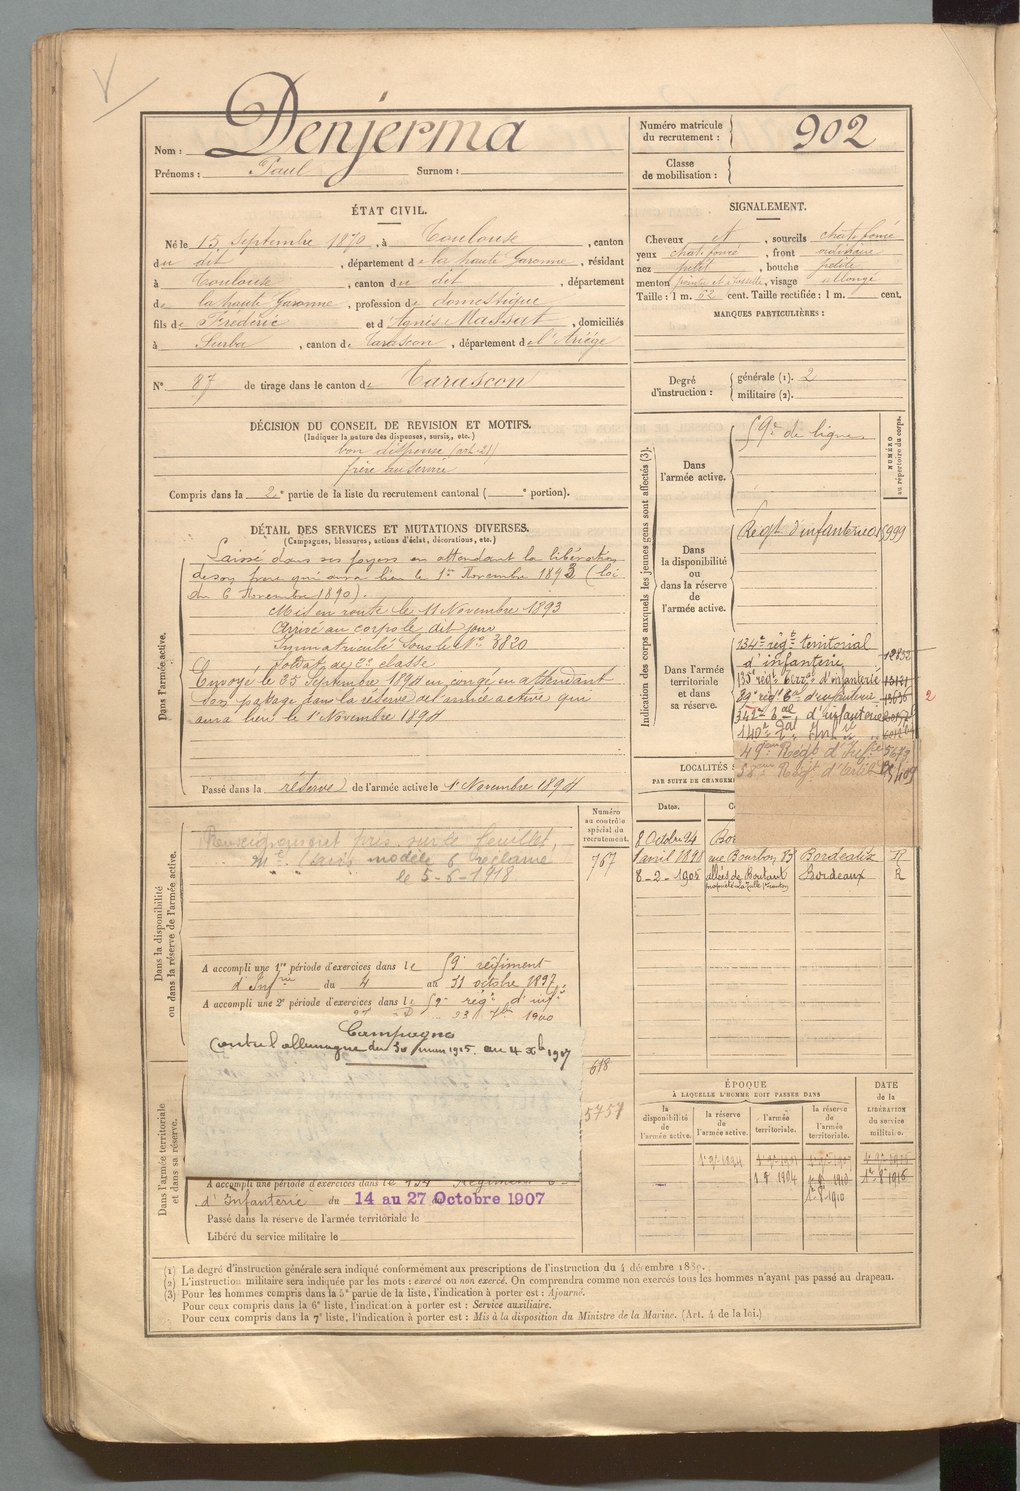 V
Nom : Denjerma
Prénoms : Paul Surnom :
Numéro matricule du recrutement : 902
Classe de mobilisation :
ÉTAT CIVIL.
Né le 15 Septembre 1870, à Toulouse, canton
du dit, département de la haute Garonne, résidant
à Toulouse, canton du dit, département
de la haute Garonne, profession de domestique
fils de Frédéric et d'Agnès Massat, domiciliés
à Surba, canton de Tarascon, département de l'Ariège
N° 87 de tirage dans le canton de Tarascon
SIGNALEMENT.
Cheveux et, sourcils chat. foncé
yeux chat. foncé, front ordinaire
nez petit, bouche petite
menton pointu et fossette, visage allongé
Taille : 1 m. 62 cent. Taille rectifiée : 1 m. cent.
MARQUES PARTICULIÈRES :
Degré d'instruction : générale (1). 2
militaire (2).
DÉCISION DU CONSEIL DE REVISION ET MOTIFS.
(Indiquer la nature des dispenses, sursis, etc.)
bon dispensé (art. 21)
frère au service
Compris dans la 2e partie de la liste du recrutement cantonal ( e portion).
DÉTAIL DES SERVICES ET MUTATIONS DIVERSES.
(Campagnes, blessures, actions d'éclat, décorations, etc.)
Dans l'armée active.
Laissé dans ses foyers en attendant la libération
de son frère qui aura lieu le 1er Novembre 1893 (loi
du 6 Novembre 1890).
Mis en route le 11 Novembre 1893
Arrivé au corps le dit jour
Immatriculé sous le N° 3820
Soldat de 2e classe
Envoyé le 25 Septembre 1894 en congé en attendant
son passage dans la réserve de l'armée active qui
aura lieu le 1er Novembre 1894
Passé dans la réserve de l'armée active le 1er Novembre 1894
Indication des corps auxquels les jeunes gens sont affectés (3).
NUMÉRO au répertoire du corps.
Dans l'armée active.
59e de ligne
Dans la disponibilité ou dans la réserve de l'armée active.
Régt d'infanterie
Dans l'armée territoriale et dans sa réserve.
134e régt territorial
d'infanterie
135e régt terral d'infanterie
d'infanterie
d'infanterie
140e
2
49ème Régt d'Infie 5673
58ème Régt d'Artie
LOCALITÉS
PAR SUITE DE CHANGEM
Dates.
8 Octobre 94 Bor
1 avril 1898 rue Bourbon, 83 Bordeaux R
8-2-1905 allées de Boutaut Bordeaux R
Numéro au contrôle spécial du recrutement.
767
618
5757
Dans la disponibilité ou dans la réserve de l'armée active.
Renseignement pris sur le feuillet
modèle 6 réclamé
le 5-6-1918
A accompli une 1re période d'exercices dans le 59e régiment
d'Infrie du 4 au 31 octobre 1897.
A accompli une 2e période d'exercices dans le 59e régt d'inf.
1900
Campagne
Contre l'allemagne du 30 juin 1915 au 4 Xbre 1917
Dans l'armée territoriale et dans sa réserve.
A accompli une période d'exercices dans le 134 Régiment
d'Infanterie du 14 au 27 Octobre 1907
Passé dans la réserve de l'armée territoriale le
Libéré du service militaire le
ÉPOQUE
À LAQUELLE L'HOMME DOIT PASSER DANS
la disponibilité de l'armée active.
la réserve de l'armée active.
l'armée territoriale.
la réserve de l'armée territoriale.
DATE de la LIBÉRATION du service militaire.
(1) Le degré d'instruction générale sera indiqué conformément aux prescriptions de l'instruction du 4 décembre 1889.
(2) L'instruction militaire sera indiquée par les mots : exercé ou non exercé. On comprendra comme non exercés tous les hommes n'ayant pas passé au drapeau.
(3) Pour les hommes compris dans la 5e partie de la liste, l'indication à porter est : Ajourné.
Pour ceux compris dans la 6e liste, l'indication à porter est : Service auxiliaire.
Pour ceux compris dans la 7e liste, l'indication à porter est : Mis à la disposition du Ministre de la Marine. (Art. 4 de la loi.)